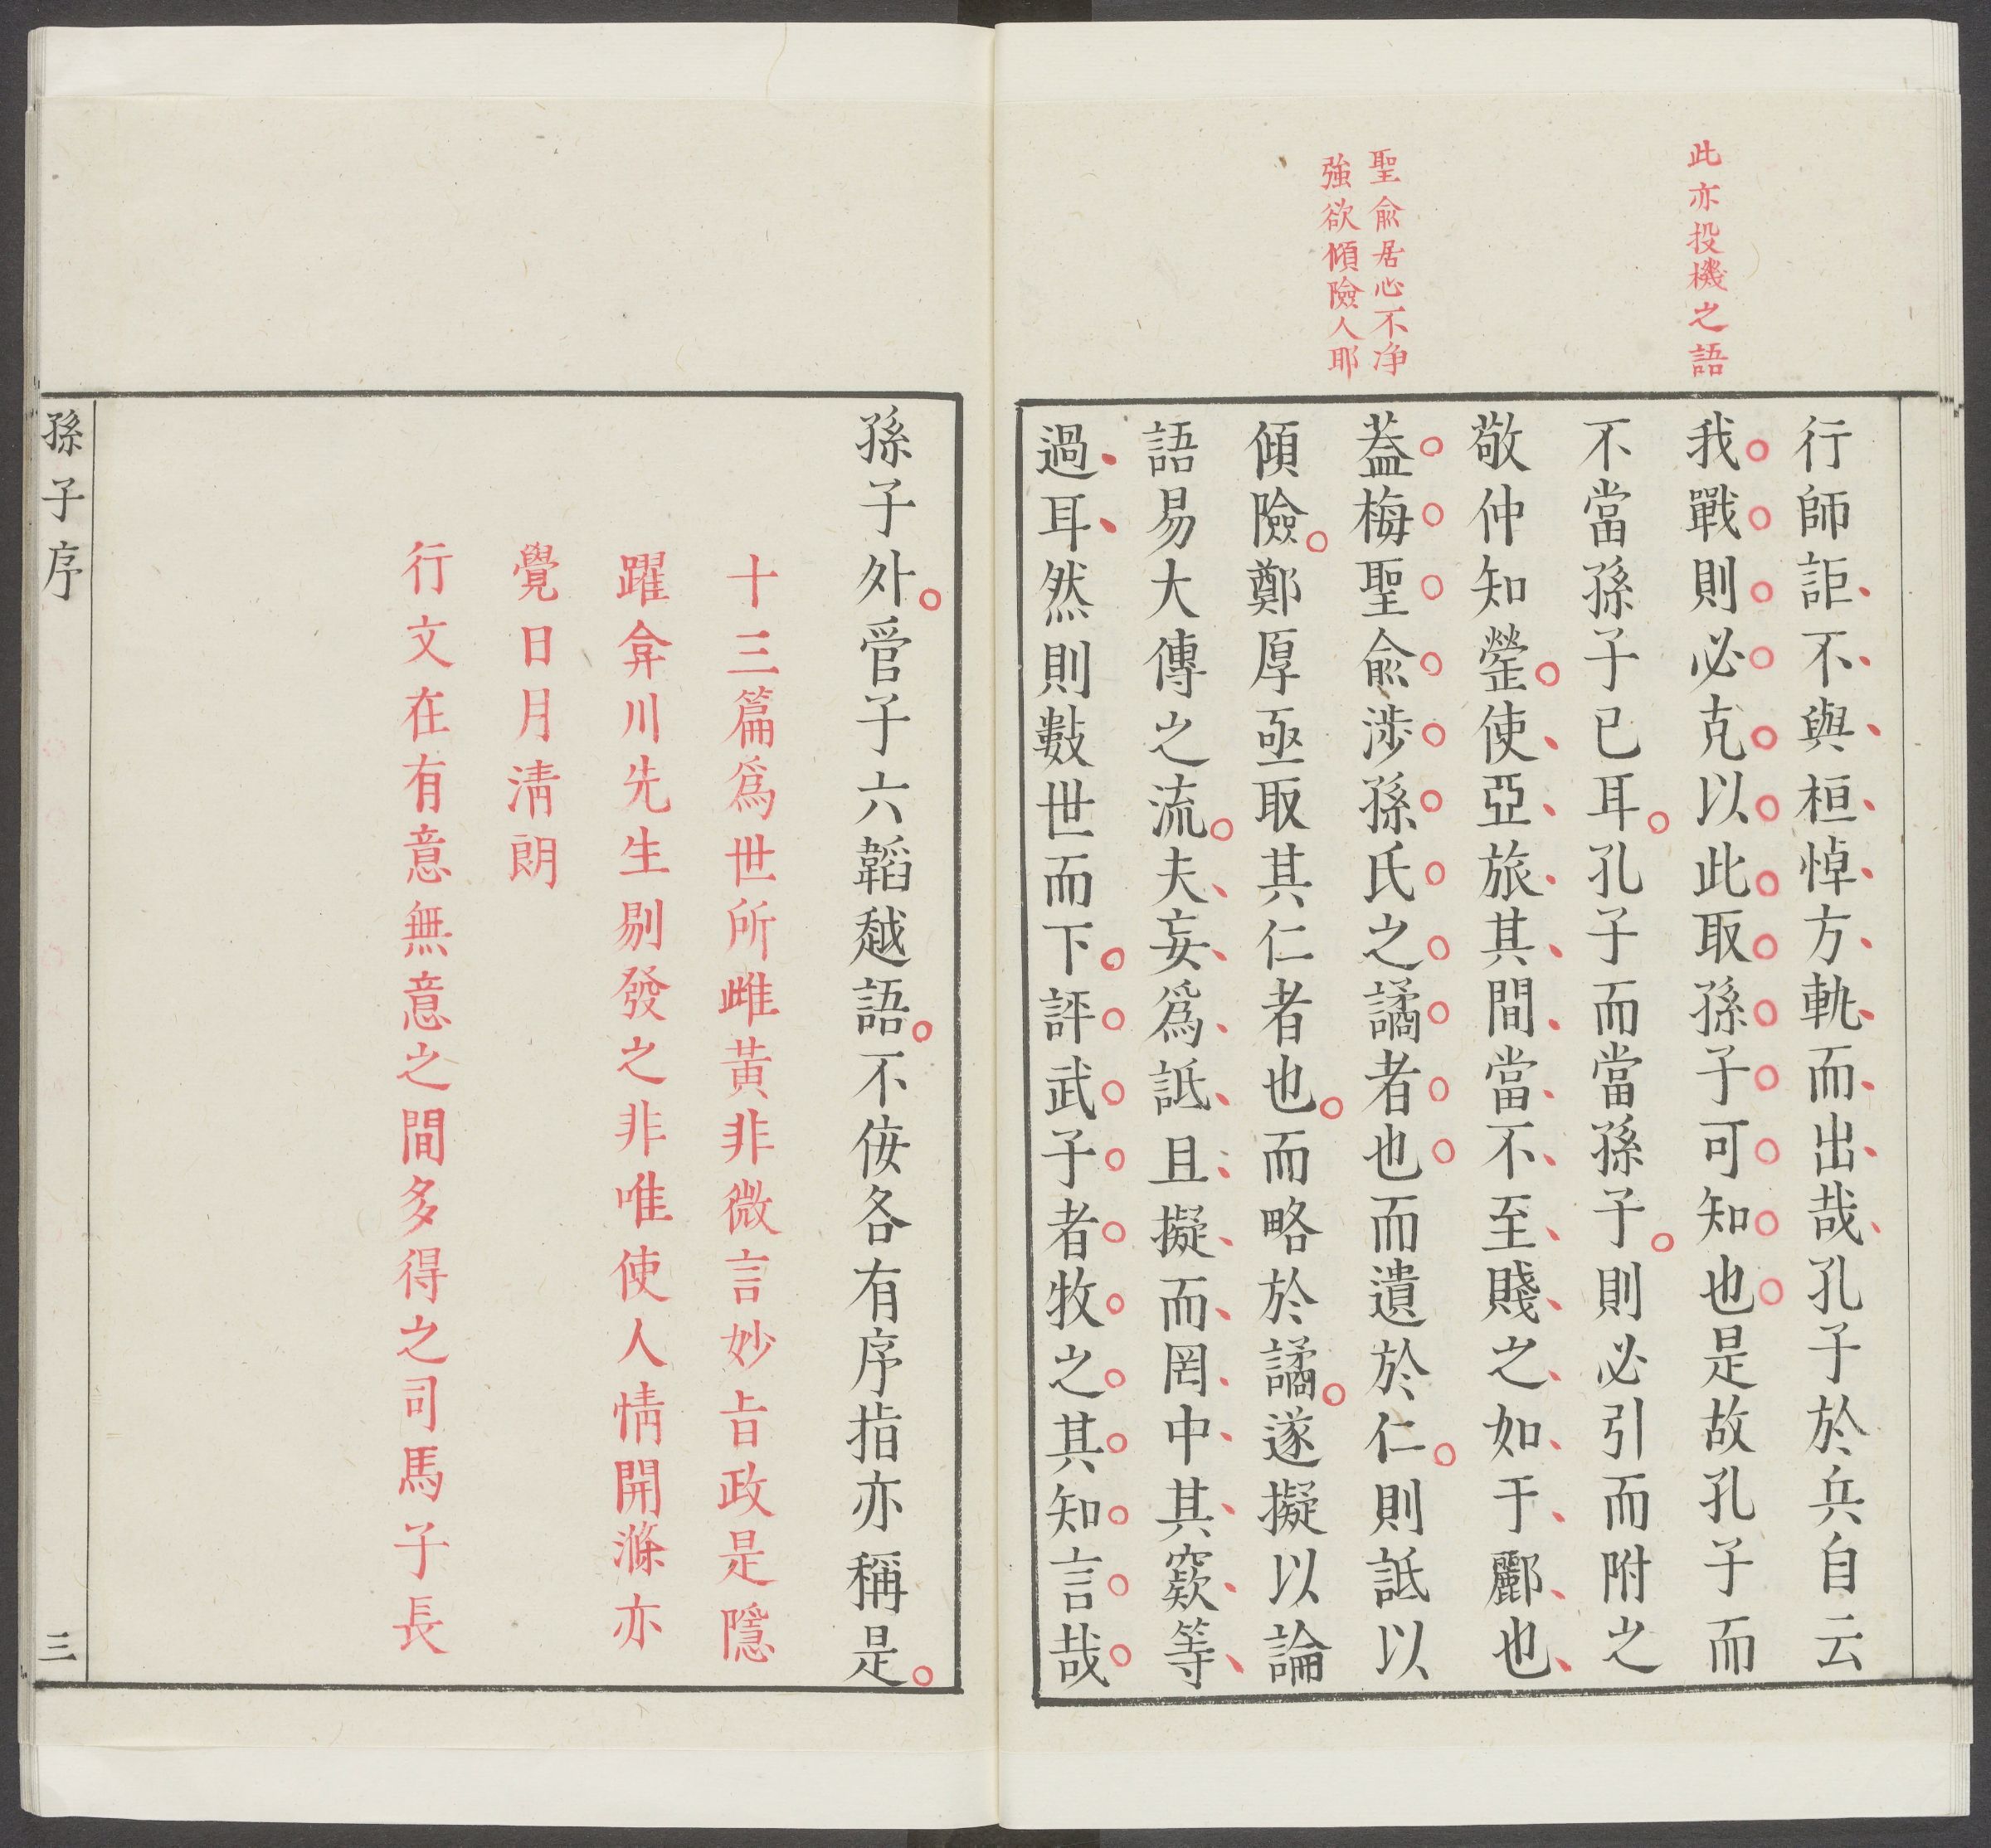 此亦投機之語
聖俞居心不淨
強欲傾險人耶
行師詎不與桓悼方軌而出哉孔子於兵自云
我戰則必克以此取孫子可知也是故孔子而
不當孫子已耳孔子而當孫子則必引而附之
敬仲知罃使亞旅其間當不至賤之如于酈也
葢梅聖俞涉孫氏之譎者也而遺於仁則詆以
傾險鄭厚亟取其仁者也而略於譎遂擬以論
語易大傳之流夫妄爲詆且擬而罔中其窽等
過耳然則數世而下評武子者牧之其知言哉
孫子外管子六韜越語不侫各有序指亦稱是
十三篇爲世所雌黃非微言妙旨政是隱
躍弇川先生剔發之非唯使人情開滌亦
覺日月清朗
行文在有意無意之間多得之司馬子長
孫子序
三